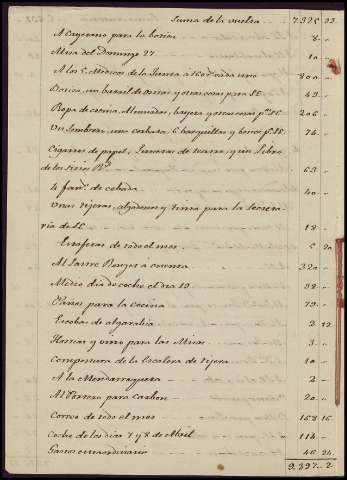 Suma de la vuelta 7.325 23
A Cayetano para la botica 8 "
Misa del Domingo 27 10 "
A los 5 Medicos de la Junta a 160 rs. cada uno 800 "
Botica, un barril de y otras cosas para SE 43 "
Ropa de cocina, Almoadas, bayeta y otras cosas pa. SE 206 "
Un sombrero, una corbata, 6 barquillas y betos pa. SE 74 "
Cigarros de papel, de teatro, y un Libro
de los sitios Rs. 63 "
4 fans. de cebada 40 "
Unas tijeras, algodones y tinta para la Secreta
ria de SE 18 "
Estafetas de todo el mes 5 20
Al Sastre Borges a cuenta 320 "
Medio dia de coche el dia 19 32 "
Paños para la cocina 73 "
Escobas de algarabia 2 12
Hostias y vino para las Misas 3 "
Compostura de la Escalera de tijera 10 "
A la 2 "
Al Portero para carbon 20 "
Correo de todo el mes 168 16
Coche de los dias 7 y 8 de Abril 114
Gastos extraordinarios 46 24
9.397 2